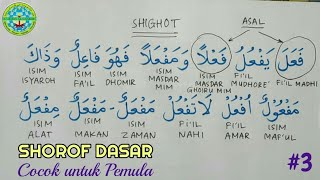 SHIGHOT
ASAL
فَعَلَ يَفْعُلُ فَعْلًا وَمَفْعَلًا فَهُوَ فَاعِلٌ وَذَاكَ
ISIM ISYAROH ISIM FA'IL ISIM DHOMIR ISIM MASDAR MIM ISIM MASDAR GHOIRU MIM FI'IL MUDHORE' FI'IL MADHI
مَفْعُوْلٌ اُفْعُلْ لَا تَفْعُلْ مَفْعَلٌ مَفْعَلٌ مِفْعَلٌ
ISIM ALAT ISIM MAKAN ISIM ZAMAN FI'IL NAHI FI'IL AMAR ISIM MAF'UL
SHOROF DASAR
Cocok untuk Pemula
#3